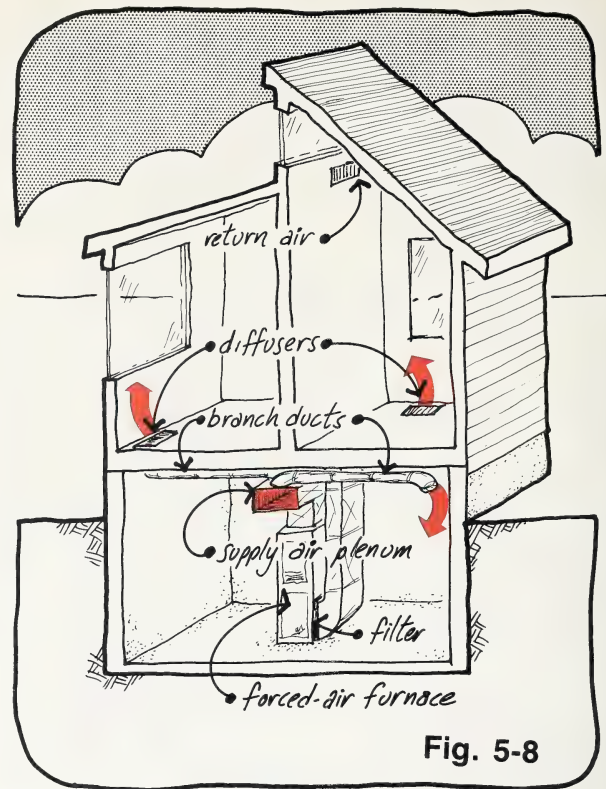 return air
diffusers
branch ducts
supply air plenum
filter
forced-air furnace
Fig. 5-8